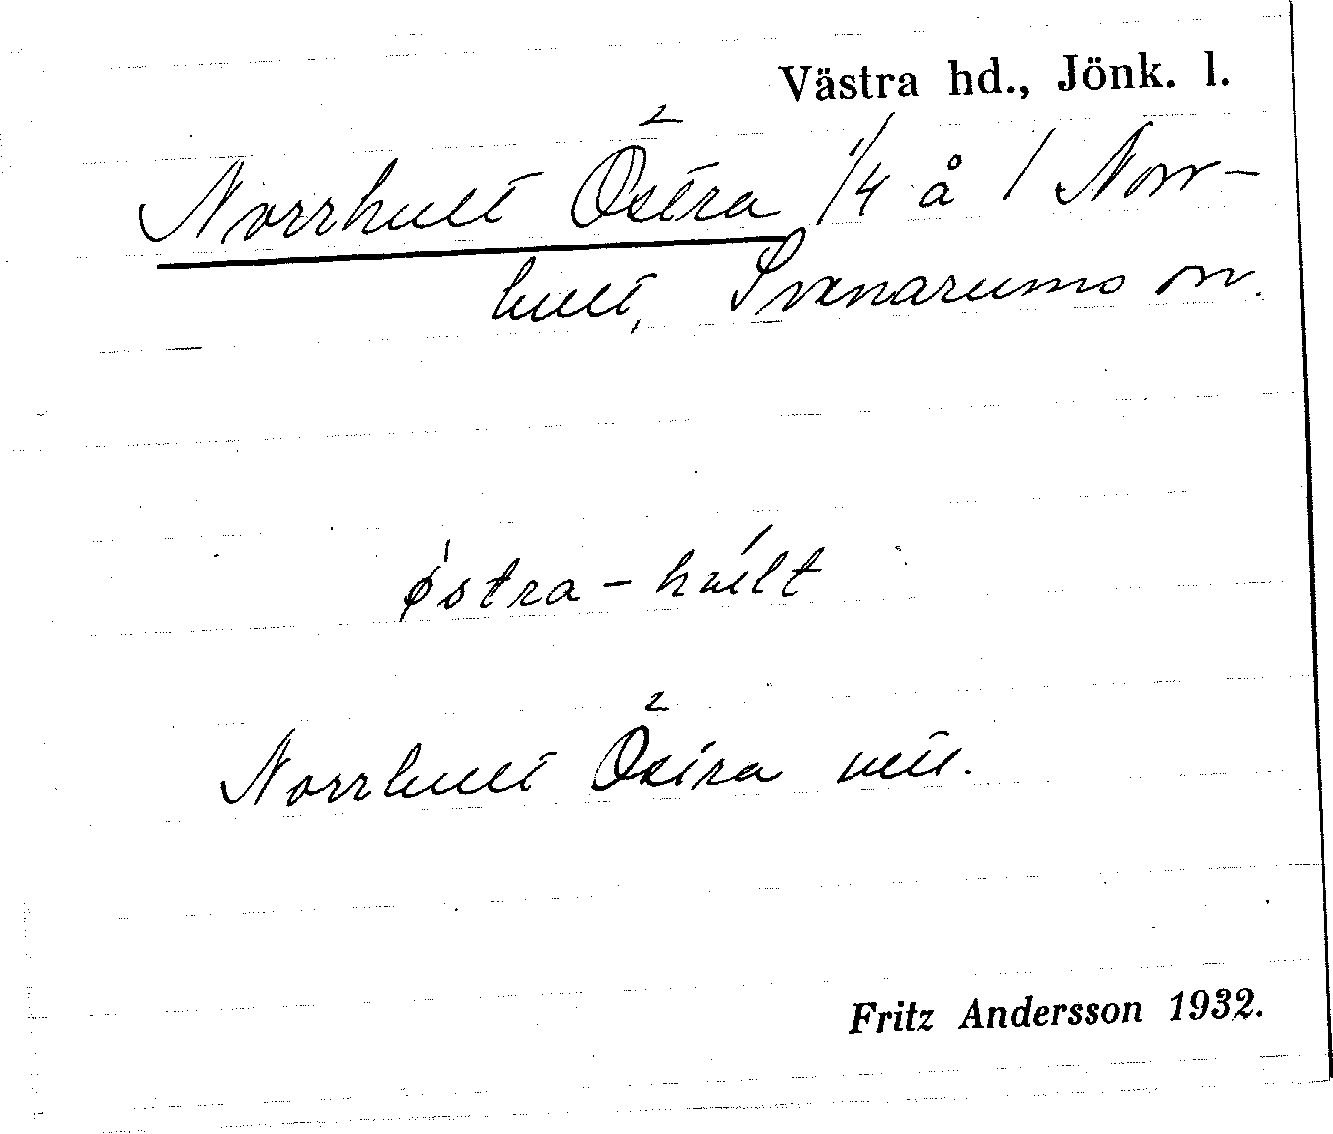 Västra hd., Jönk. l.
2
Norrhult Östra 1/4 å 1 Norr-
hult, Svenarums sn.
östra-hult
2
Norrhult Östra utt.
Fritz Andersson 1932.